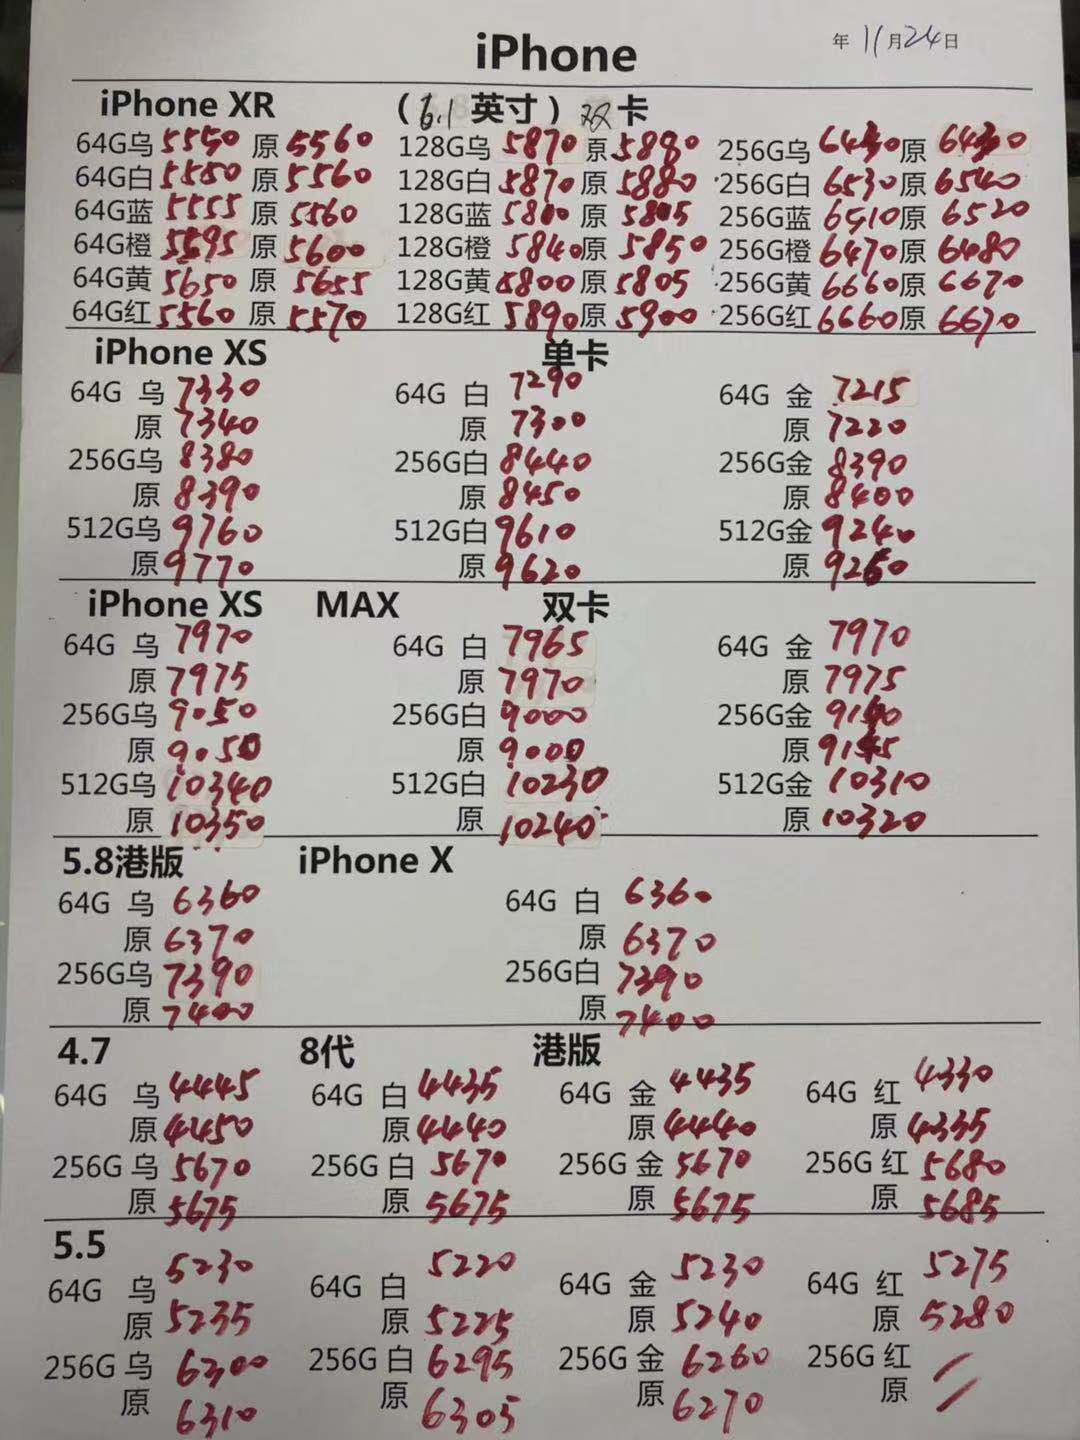 iPhone
年 11月24日
iPhone XR （6.1英寸）双卡
64G乌 5550 原 5560 128G乌 5870 原 5880 256G乌 6430 原 6430
64G白 5550 原 5560 128G白 5870 原 5880 256G白 6530 原 6540
64G蓝 5555 原 5560 128G蓝 5800 原 5805 256G蓝 6510 原 6520
64G橙 5595 原 5600 128G橙 5840 原 5850 256G橙 6470 原 6480
64G黄 5650 原 5655 128G黄 5800 原 5805 256G黄 6660 原 6670
64G红 5560 原 5570 128G红 5890 原 5900 256G红 6660 原 6670
iPhone XS 单卡
64G 乌 7330 64G 白 7290 64G 金 7215
原 7340 原 7300 原 7220
256G乌 8380 256G白 8440 256G金 8390
原 8390 原 8450 原 8400
512G乌 9760 512G白 9610 512G金 9240
原 9770 原 9620 原 9260
iPhone XS MAX 双卡
64G 乌 7970 64G 白 7965 64G 金 7970
原 7975 原 7970 原 7975
256G乌 9050 256G白 9000 256G金
原 9050 原 9000 原
512G乌 10340 512G白 10230 512G金 10310
原 10350 原 10240 原 10320
5.8港版 iPhone X
64G 乌 6360 64G 白 6360
原 6370 原 6370
256G乌 7390 256G白 7390
原 7400 原 7400
4.7 8代 港版
64G 乌 4445 64G 白 4435 64G 金 4435 64G 红 4330
原 4450 原 4440 原 4440 原 4335
256G 乌 5670 256G 白 5670 256G 金 5670 256G 红 5680
原 5675 原 5675 原 5675 原 5685
5.5
64G 乌 5230 64G 白 5220 64G 金 5230 64G 红 5275
原 5235 原 5225 原 5240 原 5280
256G 乌 6300 256G 白 6295 256G 金 6260 256G 红 /
原 6310 原 6305 原 6270 原 /